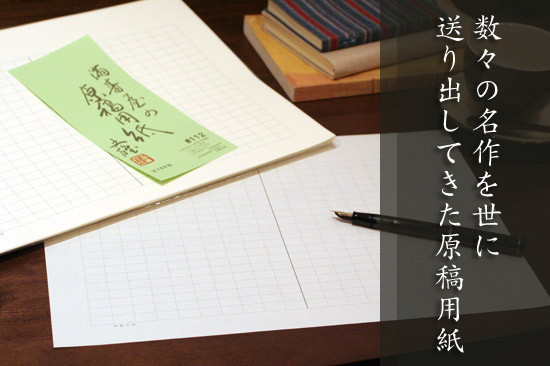 数々の名作を世に
送り出してきた原稿用紙
満寿屋の
原稿用紙
#112